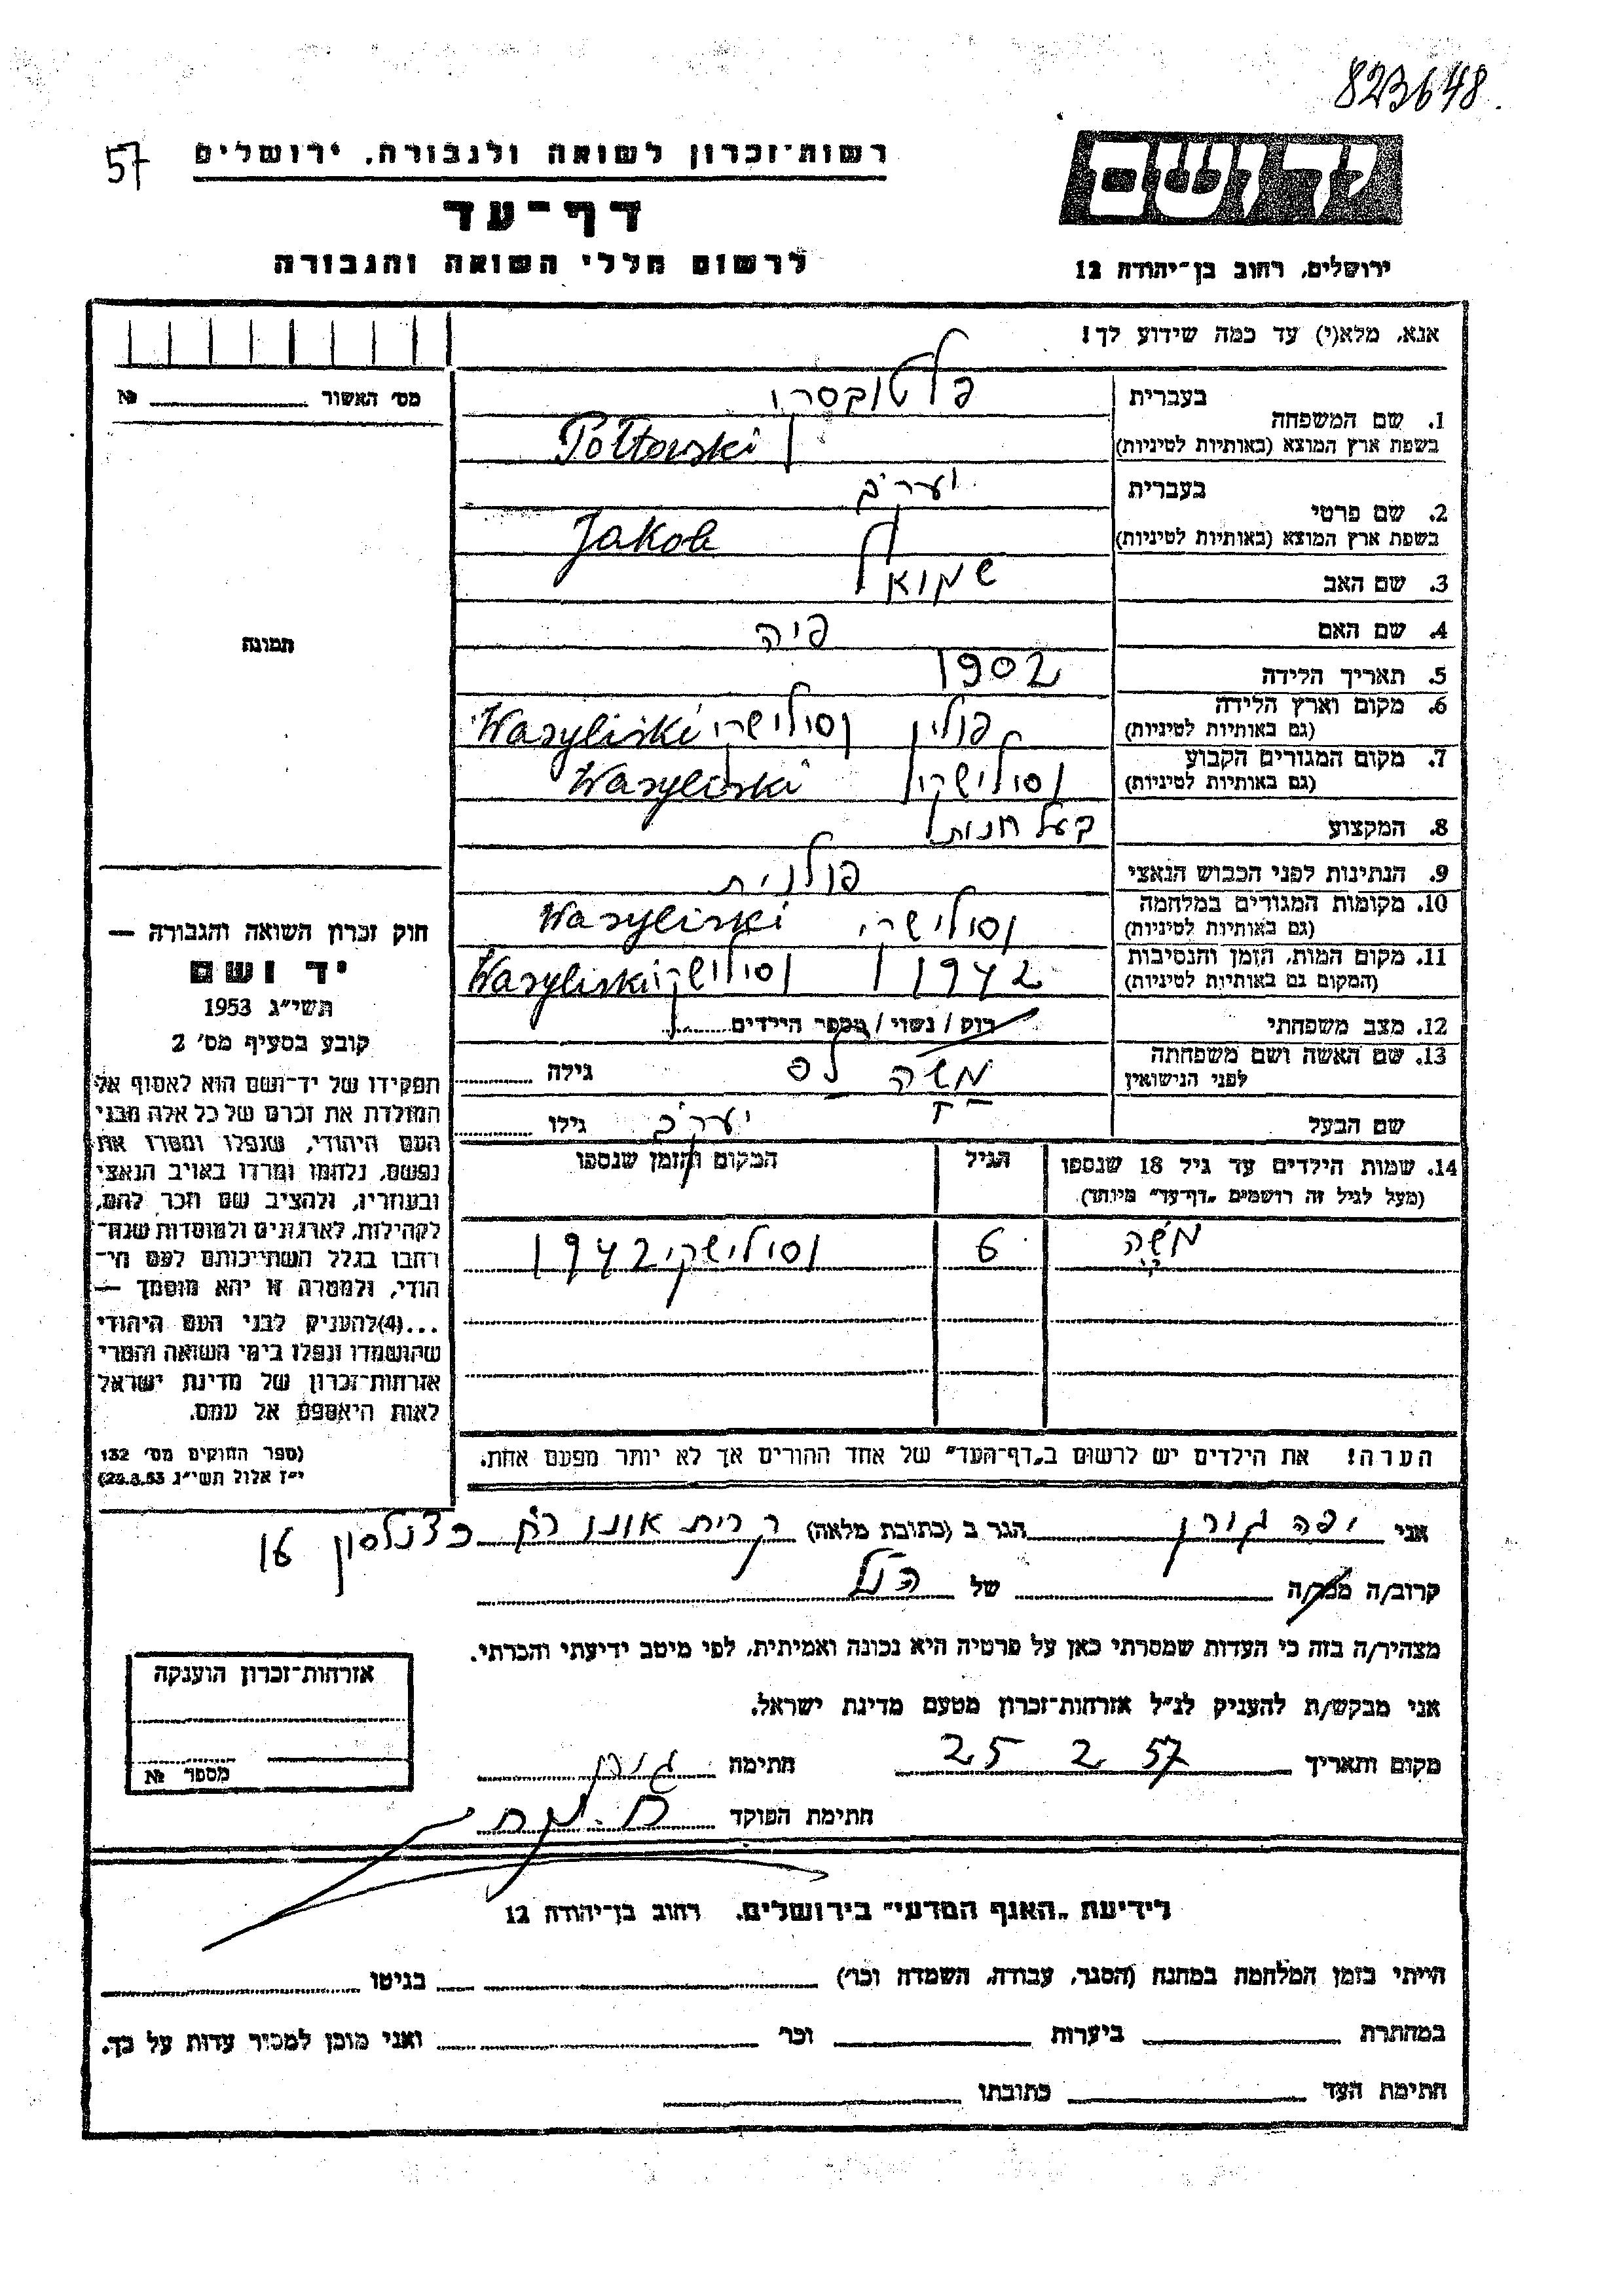 823648
57
רשות־זכרון לשואה ולגבורה, ירושלים
יד ושם
דף־עד
לרשום חללי השואה והגבורה
ירושלים, רחוב בן־יהודה 12
אנא, מלא(י) עד כמה שידוע לך!
מס' האשור № 
1. שם המשפחה
בעברית פולטובסקי
בשפת ארץ המוצא (באותיות לטיניות) Połtowski
2. שם פרטי
בעברית יעקב
בשפת ארץ המוצא (באותיות לטיניות) Jakob
3. שם האב שמואל
4. שם האם
5. תאריך הלידה 1902
6. מקום וארץ הלידה (גם באותיות לטיניות) פולין וסולישקי Wasyliski
7. מקום המגורים הקבוע (גם באותיות לטיניות) וסולישקי Wasyliski
8. המקצוע בעל חנות
9. הנתינות לפני הכבוש הנאצי פולנית
10. מקומות המגורים במלחמה (גם באותיות לטיניות) וסולישקי Wasyliski
11. מקום המות, הזמן והנסיבות (המקום גם באותיות לטיניות) 1942 וסולישקי Wasyliski
12. מצב משפחתי רוק / נשוי / מספר הילדים
13. שם האשה ושם משפחתה לפני הנישואין גילה
שם הבעל יעקב גילו
14. שמות הילדים עד גיל 18 שנספו
(מעל לגיל זה רושמים "דף־עד" מיוחד)
הגיל
המקום והזמן שנספו
משה 6 וסולישקי 1942
הערה! את הילדים יש לרשום ב"דף־העד" של אחד ההורים אך לא יותר מפעם אחת.
תמונה
חוק זכרון השואה והגבורה —
יד ושם
תשי"ג 1953
קובע בסעיף מס' 2
תפקידו של יד־ושם הוא לאסוף אל
המולדת את זכרם של כל אלה מבני
העם היהודי, שנפלו ומסרו את
נפשם, נלחמו ומרדו באויב הנאצי
ובעוזריו, ולהציב שם וזכר להם,
לקהילות, לארגונים ולמוסדות שנח־
רבו בגלל השתייכותם לעם הי־
הודי, ולמטרה זו יהא מוסמך —
...(4) להעניק לבני העם היהודי
שהושמדו ונפלו בימי השואה והמרי
אזרחות־זכרון של מדינת ישראל
לאות היאספם אל עמם.
(ספר החוקים מס' 132
י"ז אלול תשי"ג 28.8.53)
אני יפה גורן הגר ב (כתובת מלאה) קרית אונו רח כצנלסון
קרוב/ה מכר/ה של הנ"ל
מצהיר/ה בזה כי העדות שמסרתי כאן על פרטיה היא נכונה ואמיתית, לפי מיטב ידיעתי והכרתי.
אני מבקש/ת להעניק לנ"ל אזרחות־זכרון מטעם מדינת ישראל.
מקום ותאריך 25 2 57 חתימה גורן
חתימת הפוקד
אזרחות־זכרון הוענקה
מספר №
לידיעת "האגף המדעי" בירושלים, רחוב בן־יהודה 12
הייתי בזמן המלחמה במחנה (הסגר, עבודה, השמדה וכו') בגיטו
במחתרת ביערות וכו' ואני מוכן למסור עדות על כך.
חתימת העד כתובתו